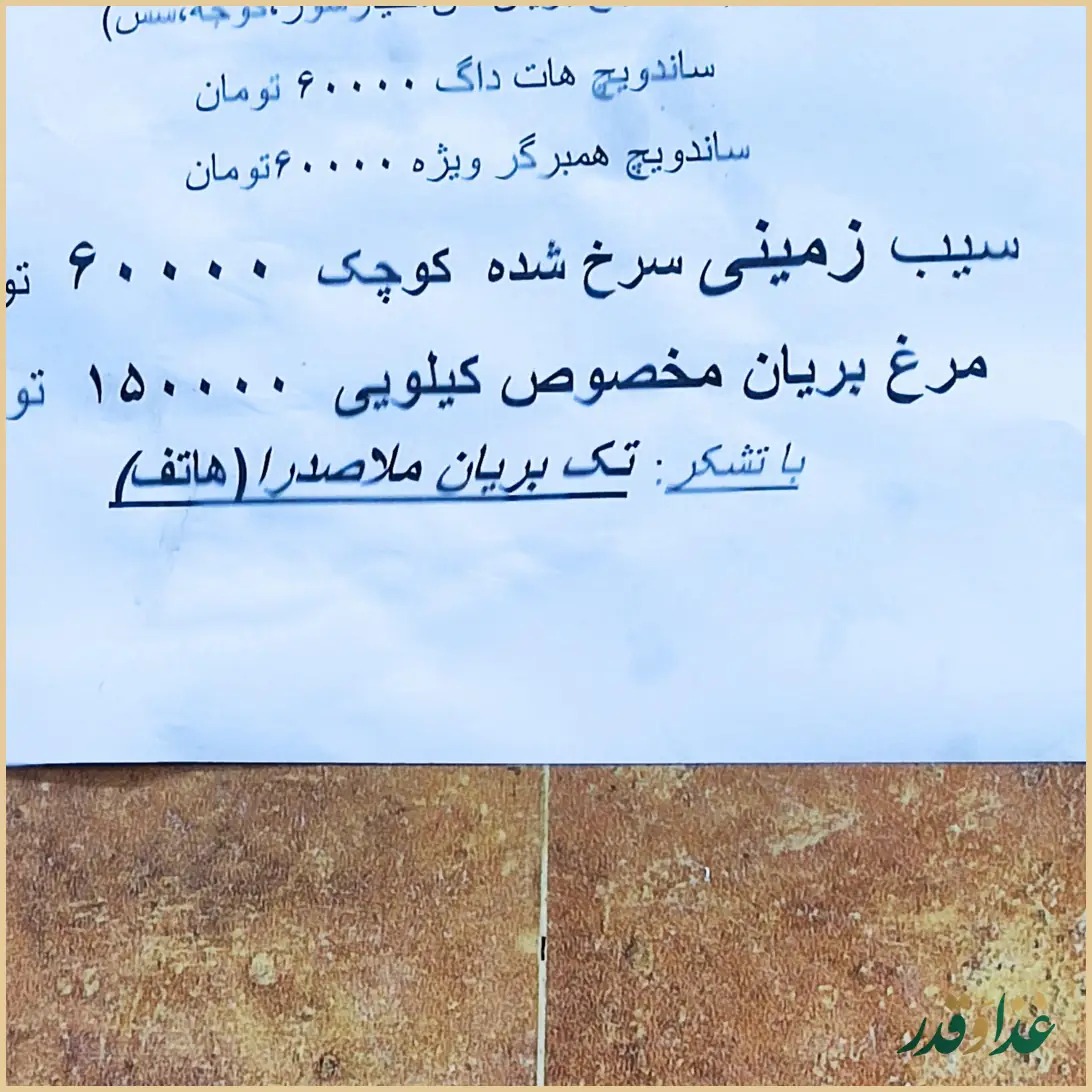 خیارشور،گوجه،سس)
ساندویچ هات داگ ۶۰۰۰۰ تومان
ساندویچ همبرگر ویژه ۶۰۰۰۰تومان
سیب زمینی سرخ شده کوچک ۶۰۰۰۰ تو
مرغ بریان مخصوص کیلویی ۱۵۰۰۰۰ تو
با تشکر: تک بریان ملاصدرا(هاتف)
غذا و قدر